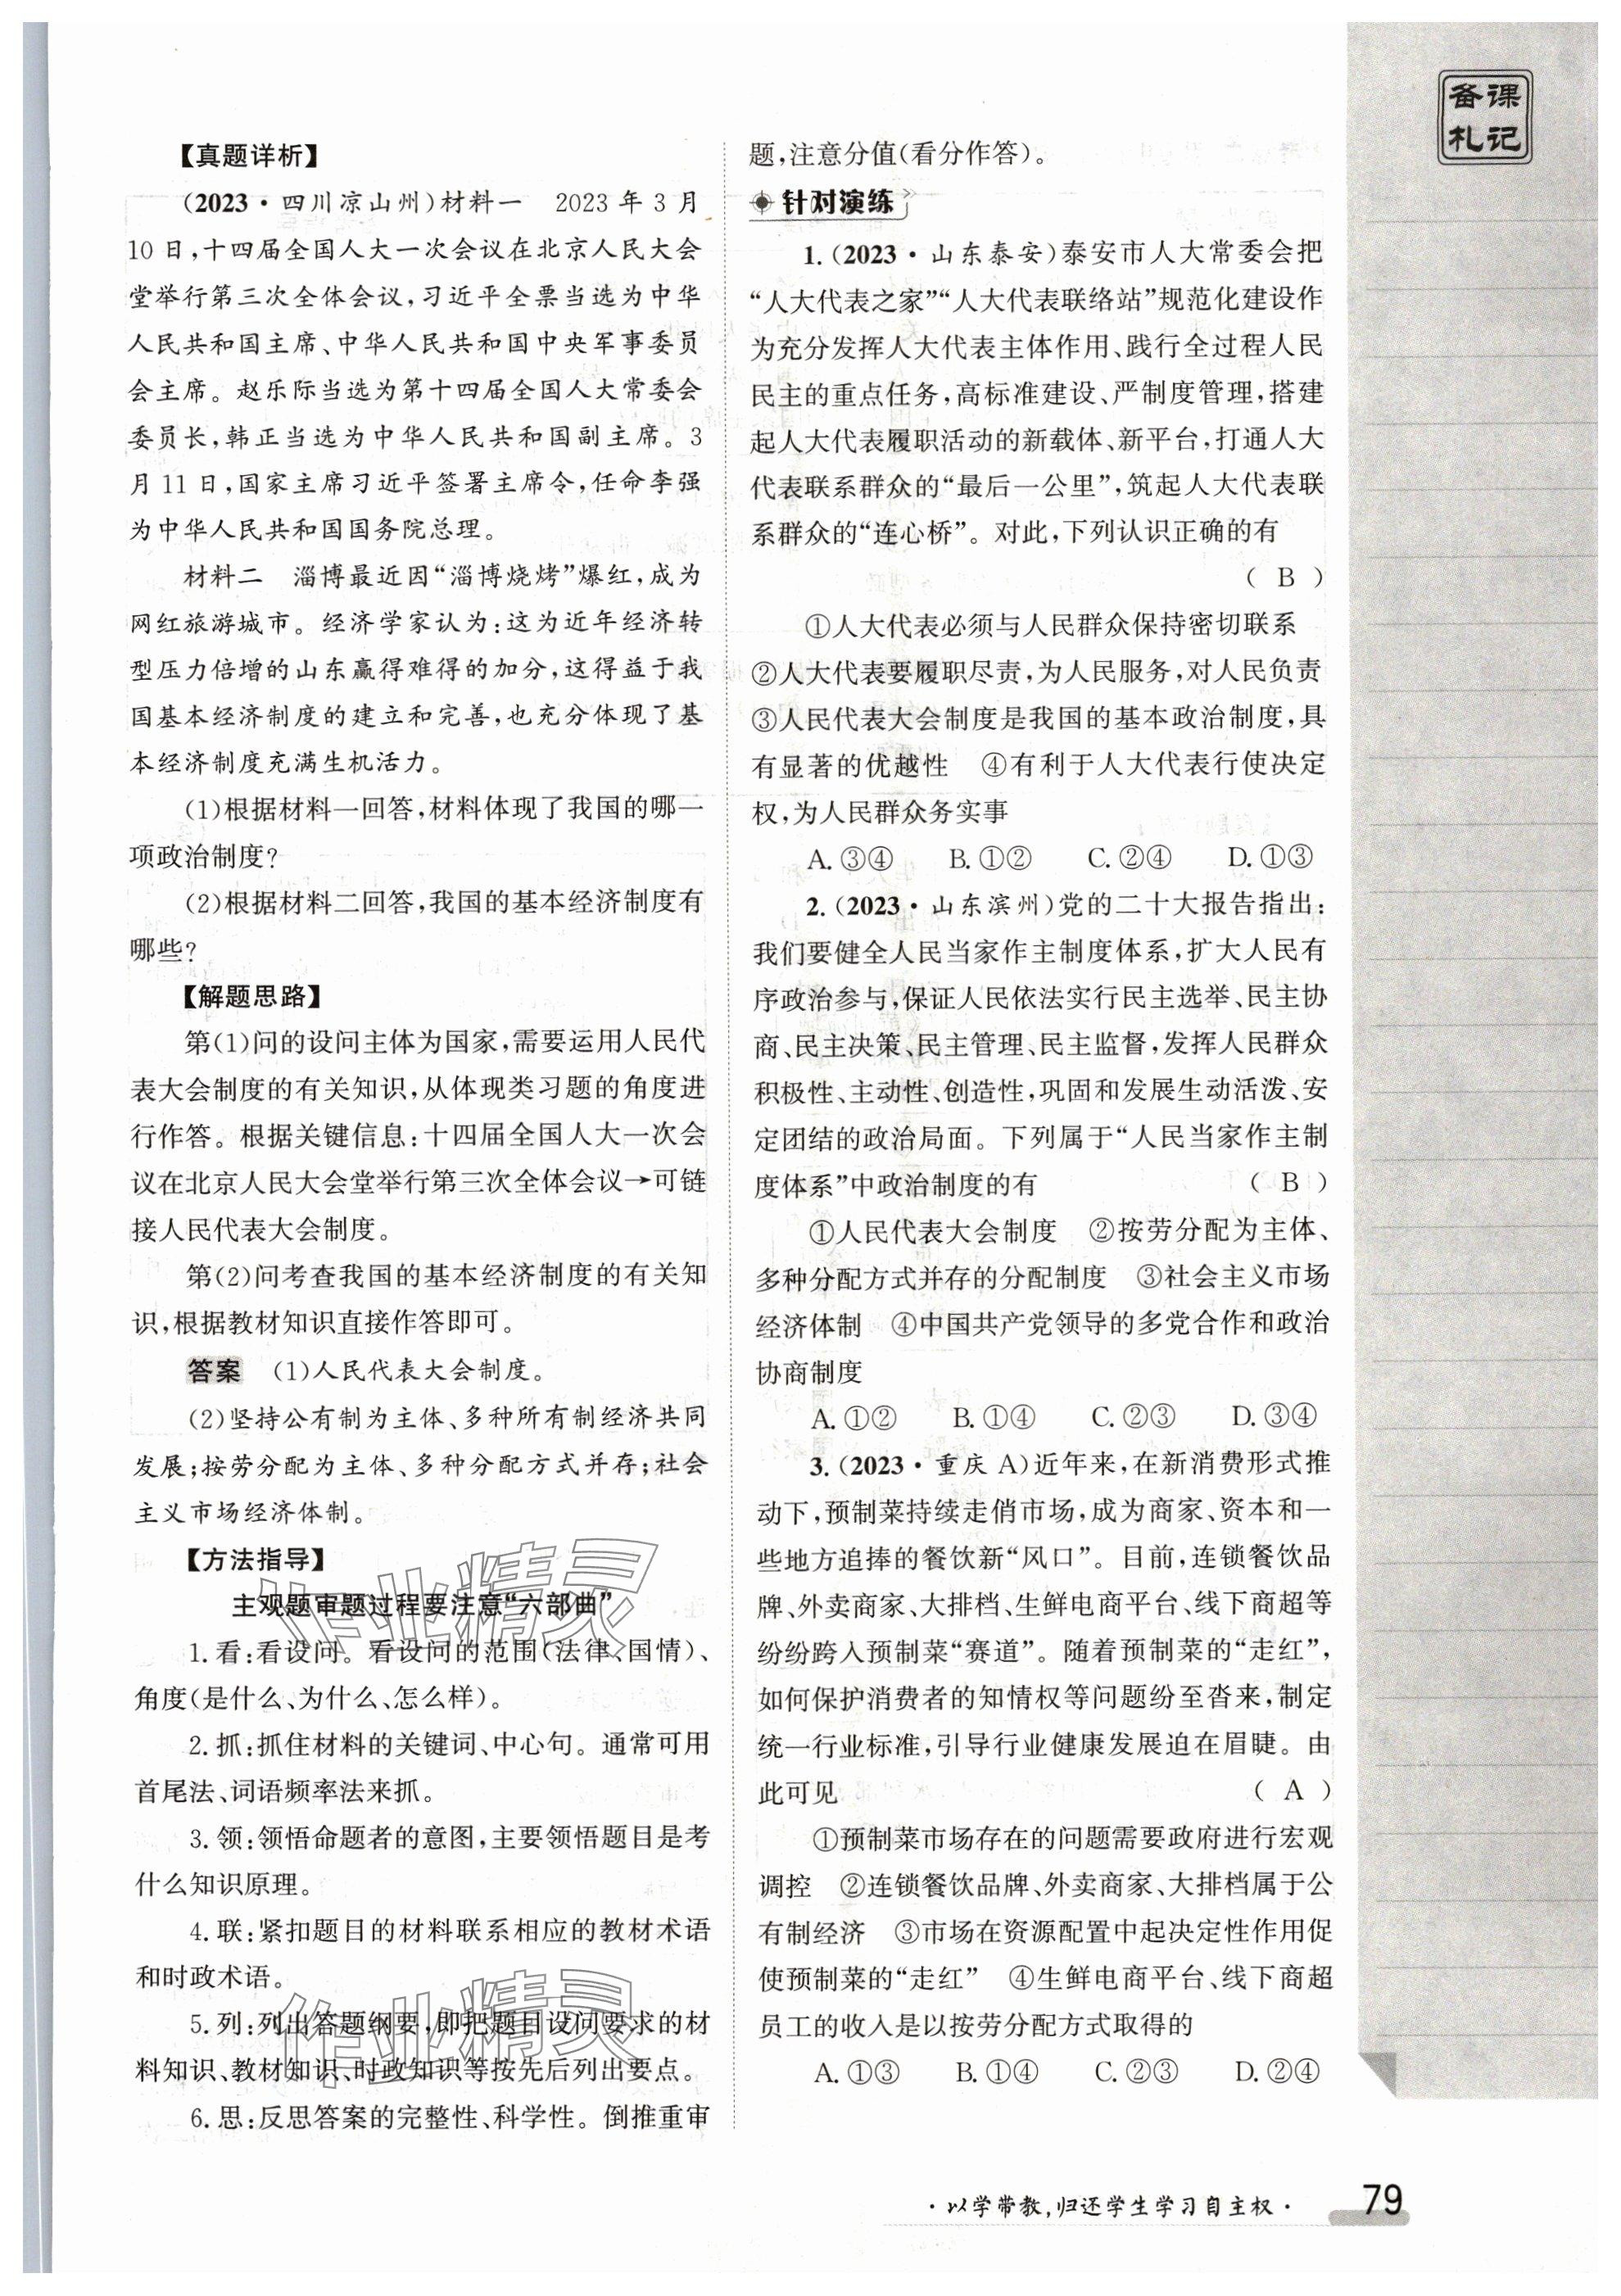 备课
札记
【真题详析】
(2023·四川凉山州)材料一　2023年3月
10日,十四届全国人大一次会议在北京人民大会
堂举行第三次全体会议,习近平全票当选为中华
人民共和国主席、中华人民共和国中央军事委员
会主席。赵乐际当选为第十四届全国人大常委会
委员长,韩正当选为中华人民共和国副主席。3
月11日,国家主席习近平签署主席令,任命李强
为中华人民共和国国务院总理。
材料二　淄博最近因“淄博烧烤”爆红,成为
网红旅游城市。经济学家认为:这为近年经济转
型压力倍增的山东赢得难得的加分,这得益于我
国基本经济制度的建立和完善,也充分体现了基
本经济制度充满生机活力。
(1)根据材料一回答,材料体现了我国的哪一
项政治制度?
(2)根据材料二回答,我国的基本经济制度有
哪些?
【解题思路】
第(1)问的设问主体为国家,需要运用人民代
表大会制度的有关知识,从体现类习题的角度进
行作答。根据关键信息:十四届全国人大一次会
议在北京人民大会堂举行第三次全体会议→可链
接人民代表大会制度。
第(2)问考查我国的基本经济制度的有关知
识,根据教材知识直接作答即可。
答案　(1)人民代表大会制度。
(2)坚持公有制为主体、多种所有制经济共同
发展;按劳分配为主体、多种分配方式并存;社会
主义市场经济体制。
【方法指导】
主观题审题过程要注意“六部曲”
1.看:看设问。看设问的范围(法律、国情)、
角度(是什么、为什么、怎么样)。
2.抓:抓住材料的关键词、中心句。通常可用
首尾法、词语频率法来抓。
3.领:领悟命题者的意图,主要领悟题目是考
什么知识原理。
4.联:紧扣题目的材料联系相应的教材术语
和时政术语。
5.列:列出答题纲要,即把题目设问要求的材
料知识、教材知识、时政知识等按先后列出要点。
6.思:反思答案的完整性、科学性。倒推重审
题,注意分值(看分作答)。
针对演练
1.(2023·山东泰安)泰安市人大常委会把
“人大代表之家”“人大代表联络站”规范化建设作
为充分发挥人大代表主体作用、践行全过程人民
民主的重点任务,高标准建设、严制度管理,搭建
起人大代表履职活动的新载体、新平台,打通人大
代表联系群众的“最后一公里”,筑起人大代表联
系群众的“连心桥”。对此,下列认识正确的有
( B )
①人大代表必须与人民群众保持密切联系
②人大代表要履职尽责,为人民服务,对人民负责
③人民代表大会制度是我国的基本政治制度,具
有显著的优越性　④有利于人大代表行使决定
权,为人民群众务实事
A.③④　B.①②　C.②④　D.①③
2.(2023·山东滨州)党的二十大报告指出:
我们要健全人民当家作主制度体系,扩大人民有
序政治参与,保证人民依法实行民主选举、民主协
商、民主决策、民主管理、民主监督,发挥人民群众
积极性、主动性、创造性,巩固和发展生动活泼、安
定团结的政治局面。下列属于“人民当家作主制
度体系”中政治制度的有 ( B )
①人民代表大会制度　②按劳分配为主体、
多种分配方式并存的分配制度　③社会主义市场
经济体制　④中国共产党领导的多党合作和政治
协商制度
A.①②　B.①④　C.②③　D.③④
3.(2023·重庆A)近年来,在新消费形式推
动下,预制菜持续走俏市场,成为商家、资本和一
些地方追捧的餐饮新“风口”。目前,连锁餐饮品
牌、外卖商家、大排档、生鲜电商平台、线下商超等
纷纷跨入预制菜“赛道”。随着预制菜的“走红”,
如何保护消费者的知情权等问题纷至沓来,制定
统一行业标准,引导行业健康发展迫在眉睫。由
此可见 ( A )
①预制菜市场存在的问题需要政府进行宏观
调控　②连锁餐饮品牌、外卖商家、大排档属于公
有制经济　③市场在资源配置中起决定性作用促
使预制菜的“走红”　④生鲜电商平台、线下商超
员工的收入是以按劳分配方式取得的
A.①③　B.①④　C.②③　D.②④
作业精灵
作业精灵
·以学带教,归还学生学习自主权·
79